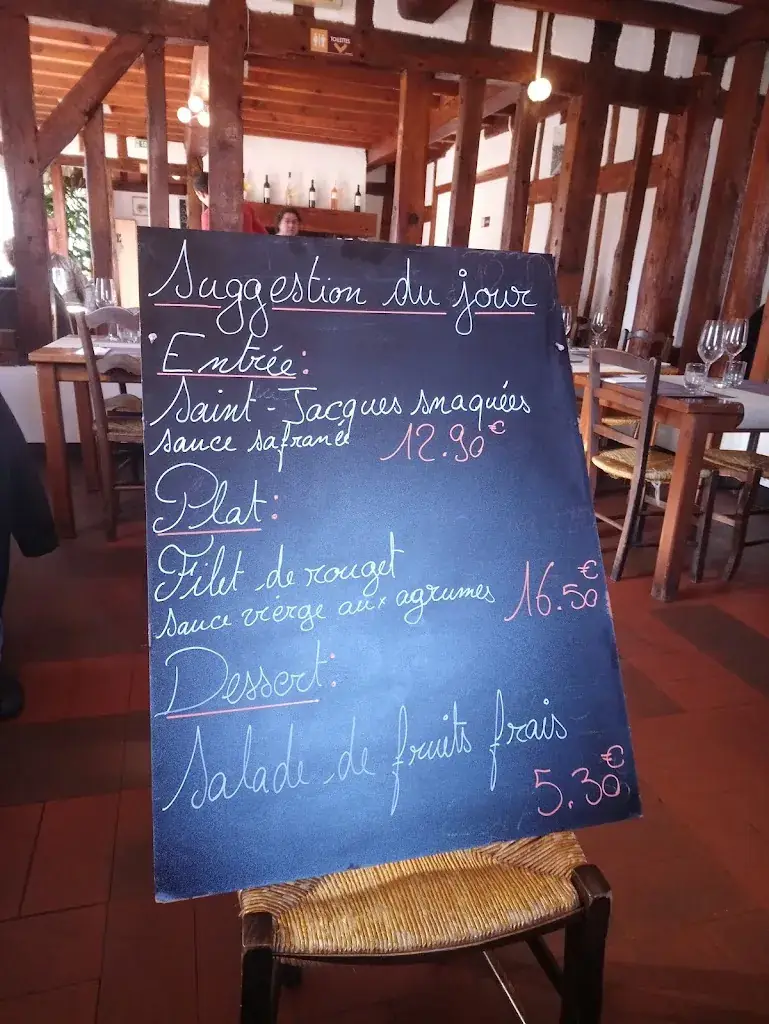 TOILETTES
Suggestion du jour
Entrée:
Saint-Jacques snaquées
sauce safrané 12.90€
Plat:
Filet de rouget
sauce vierge aux agrumes 16.50€
Dessert:
Salade de fruits frais
5.30€